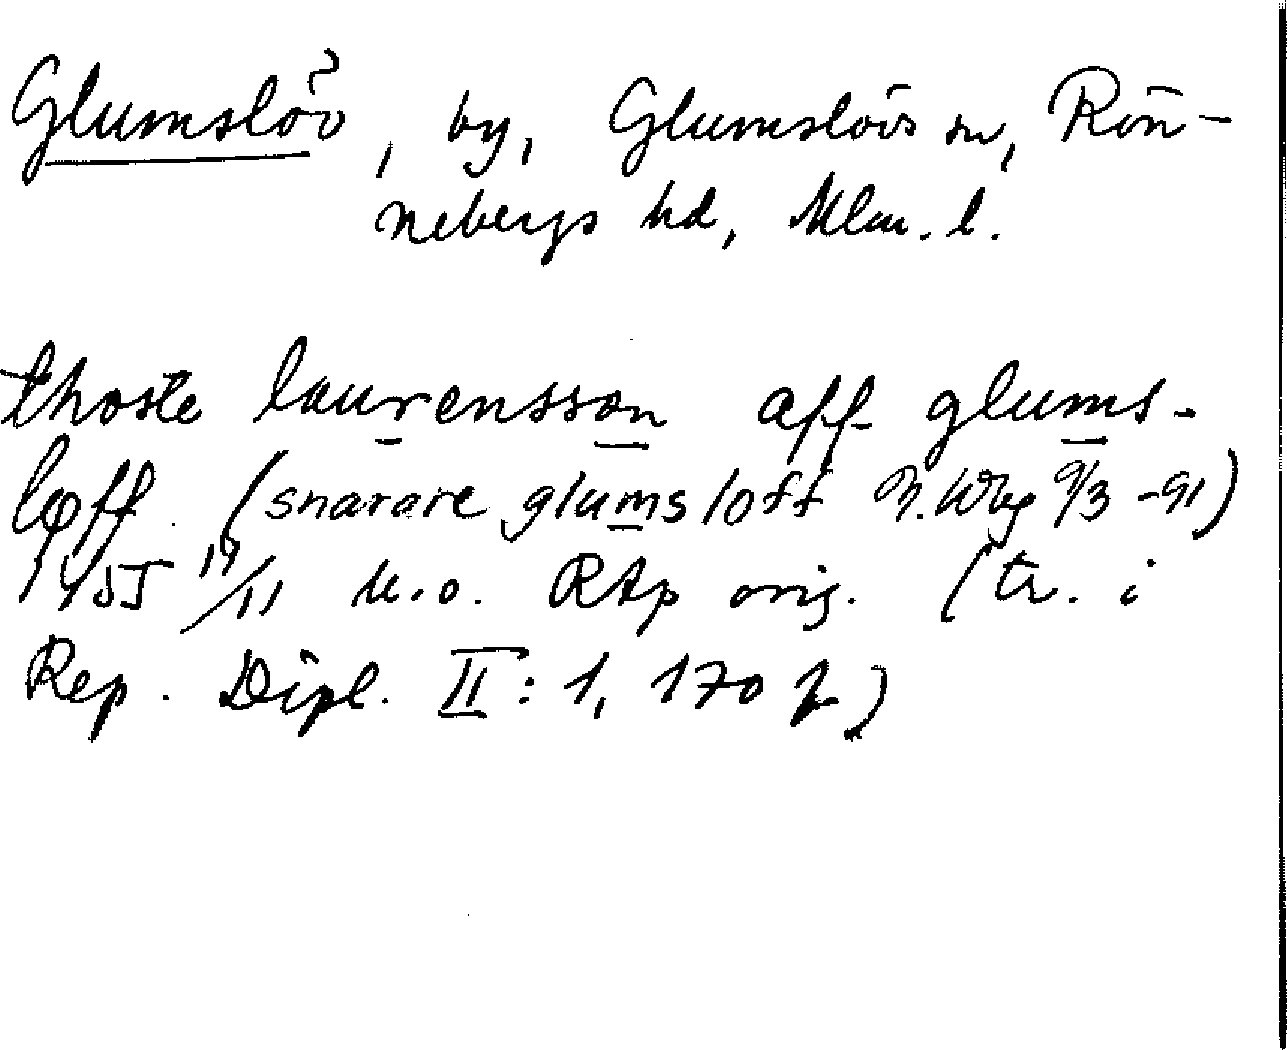 Glumslöv, by, Glumslövs sn, Rön-
nebergs hd, Mlm. l.
thoste laurensson aff glums-
løff (snarare glums loff 9/3 -91)
1455 19/11 u.o. RAp orig. (tr. i
Rep. Dipl. II: 1, 170 f)